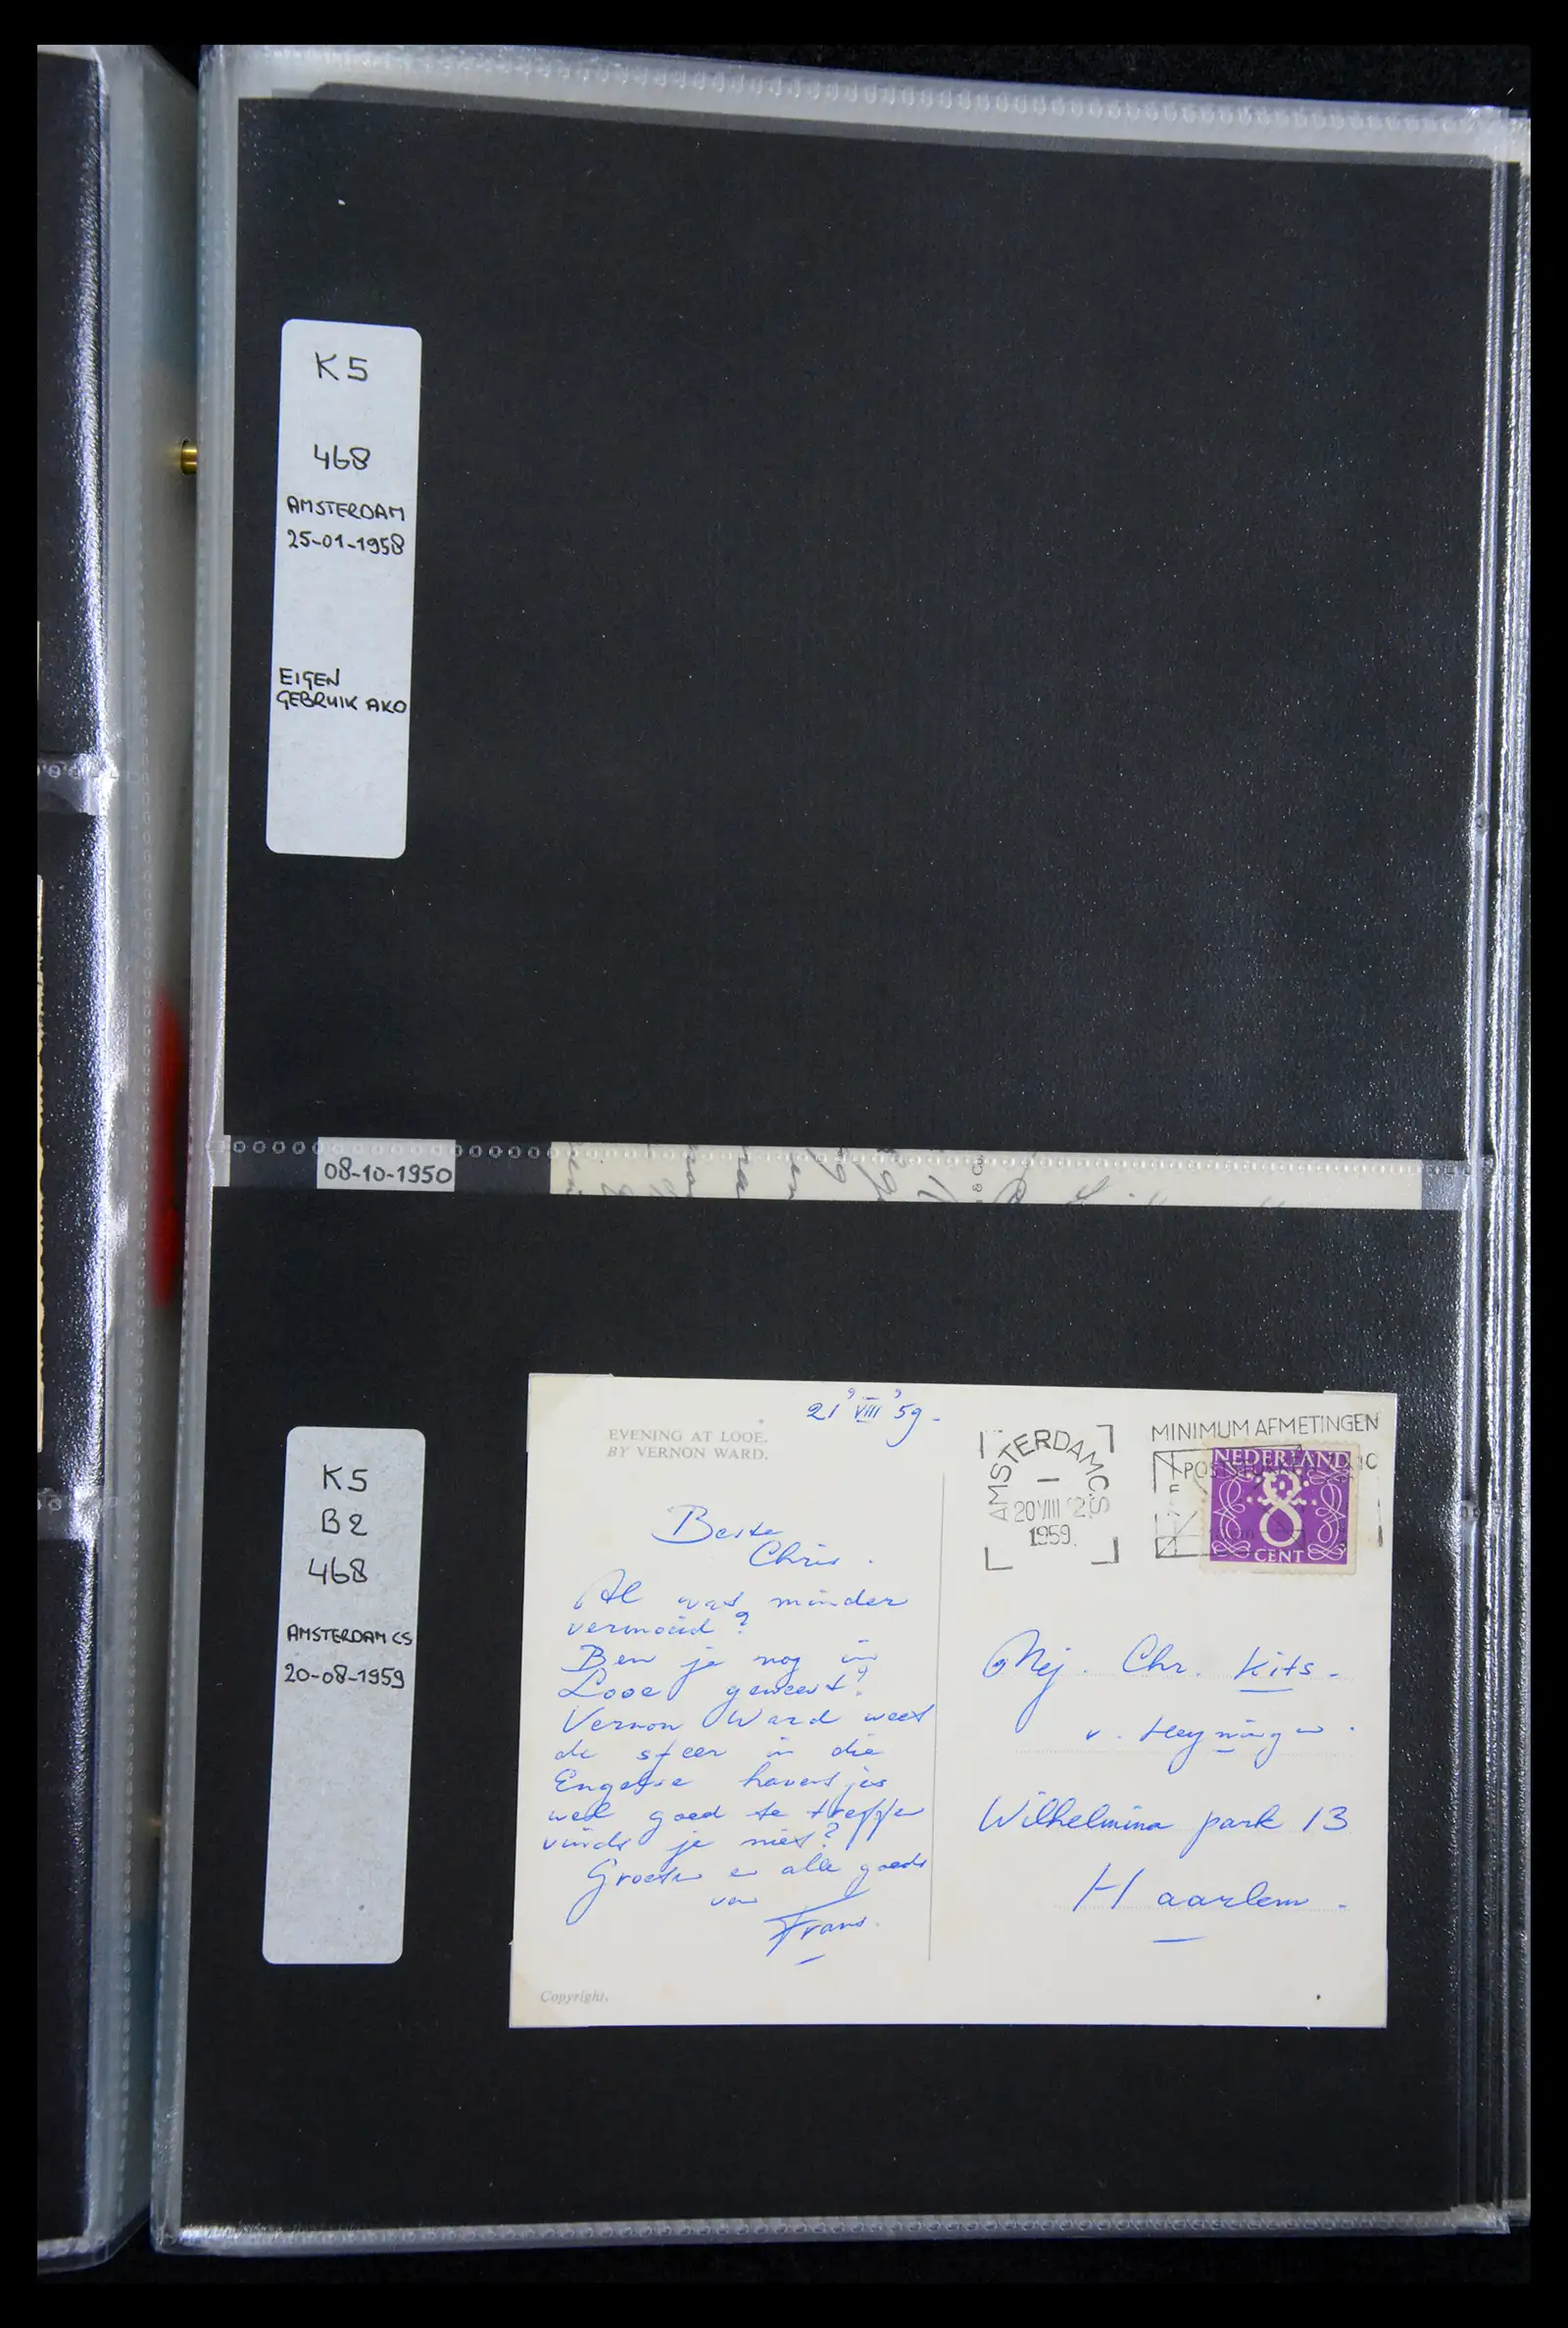 K5
468
AMSTERDAM
25-01-1958
EIGEN
GEBRUIK AKO
08-10-1950
K5
B2
468
AMSTERDAM CS
20-08-1959
21 VIII '59.
EVENING AT LOOE.
BY VERNON WARD.
Beste
Chris.
Al wat minder
vermoeid?
Ben je nog in
Looe geweest?
Vernon Ward weet
de sfeer in die
Engelse havens
wel goed te treffen
vindt je niet?
Groeten en alle goeds
van
Frans.
Copyright.
AMSTERDAM C.S
20 VIII
1959
MINIMUM AFMETINGEN
NEDERLAND
8
CENT
Mej. Chr. Kits.
v. Heyningen.
Wilhelmina park 13
Haarlem.